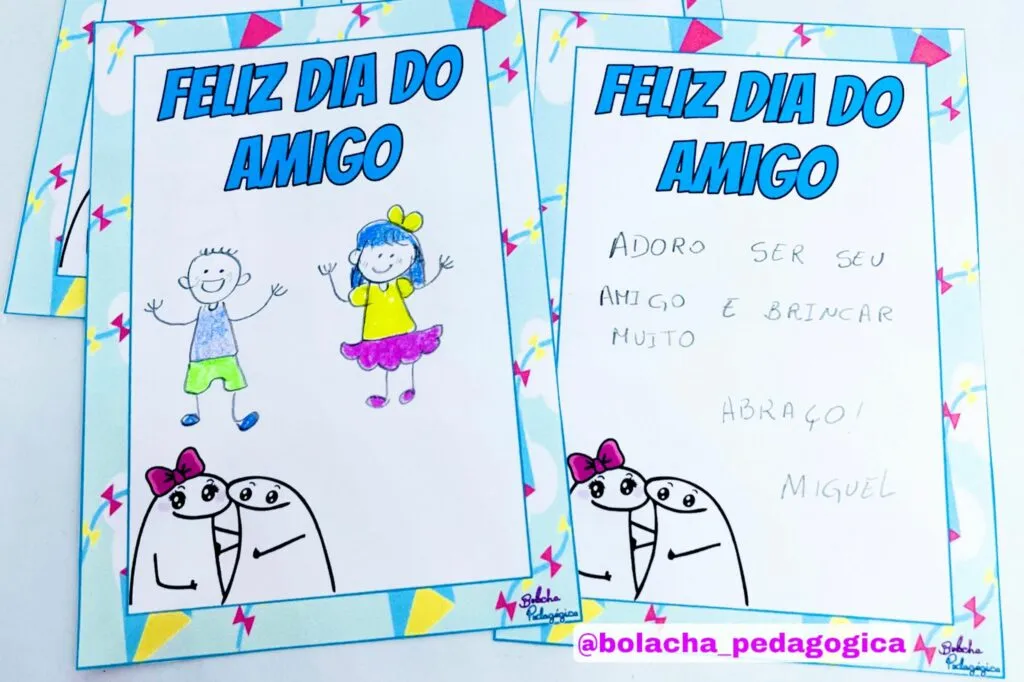 FELIZ DIA DO
AMIGO
Bolacha
Pedagógica
FELIZ DIA DO
AMIGO
ADORO SER SEU
AMIGO E BRINCAR
MUITO
ABRAÇO!
MIGUEL
@bolacha_pedagogica
Bolacha
Pedagógica